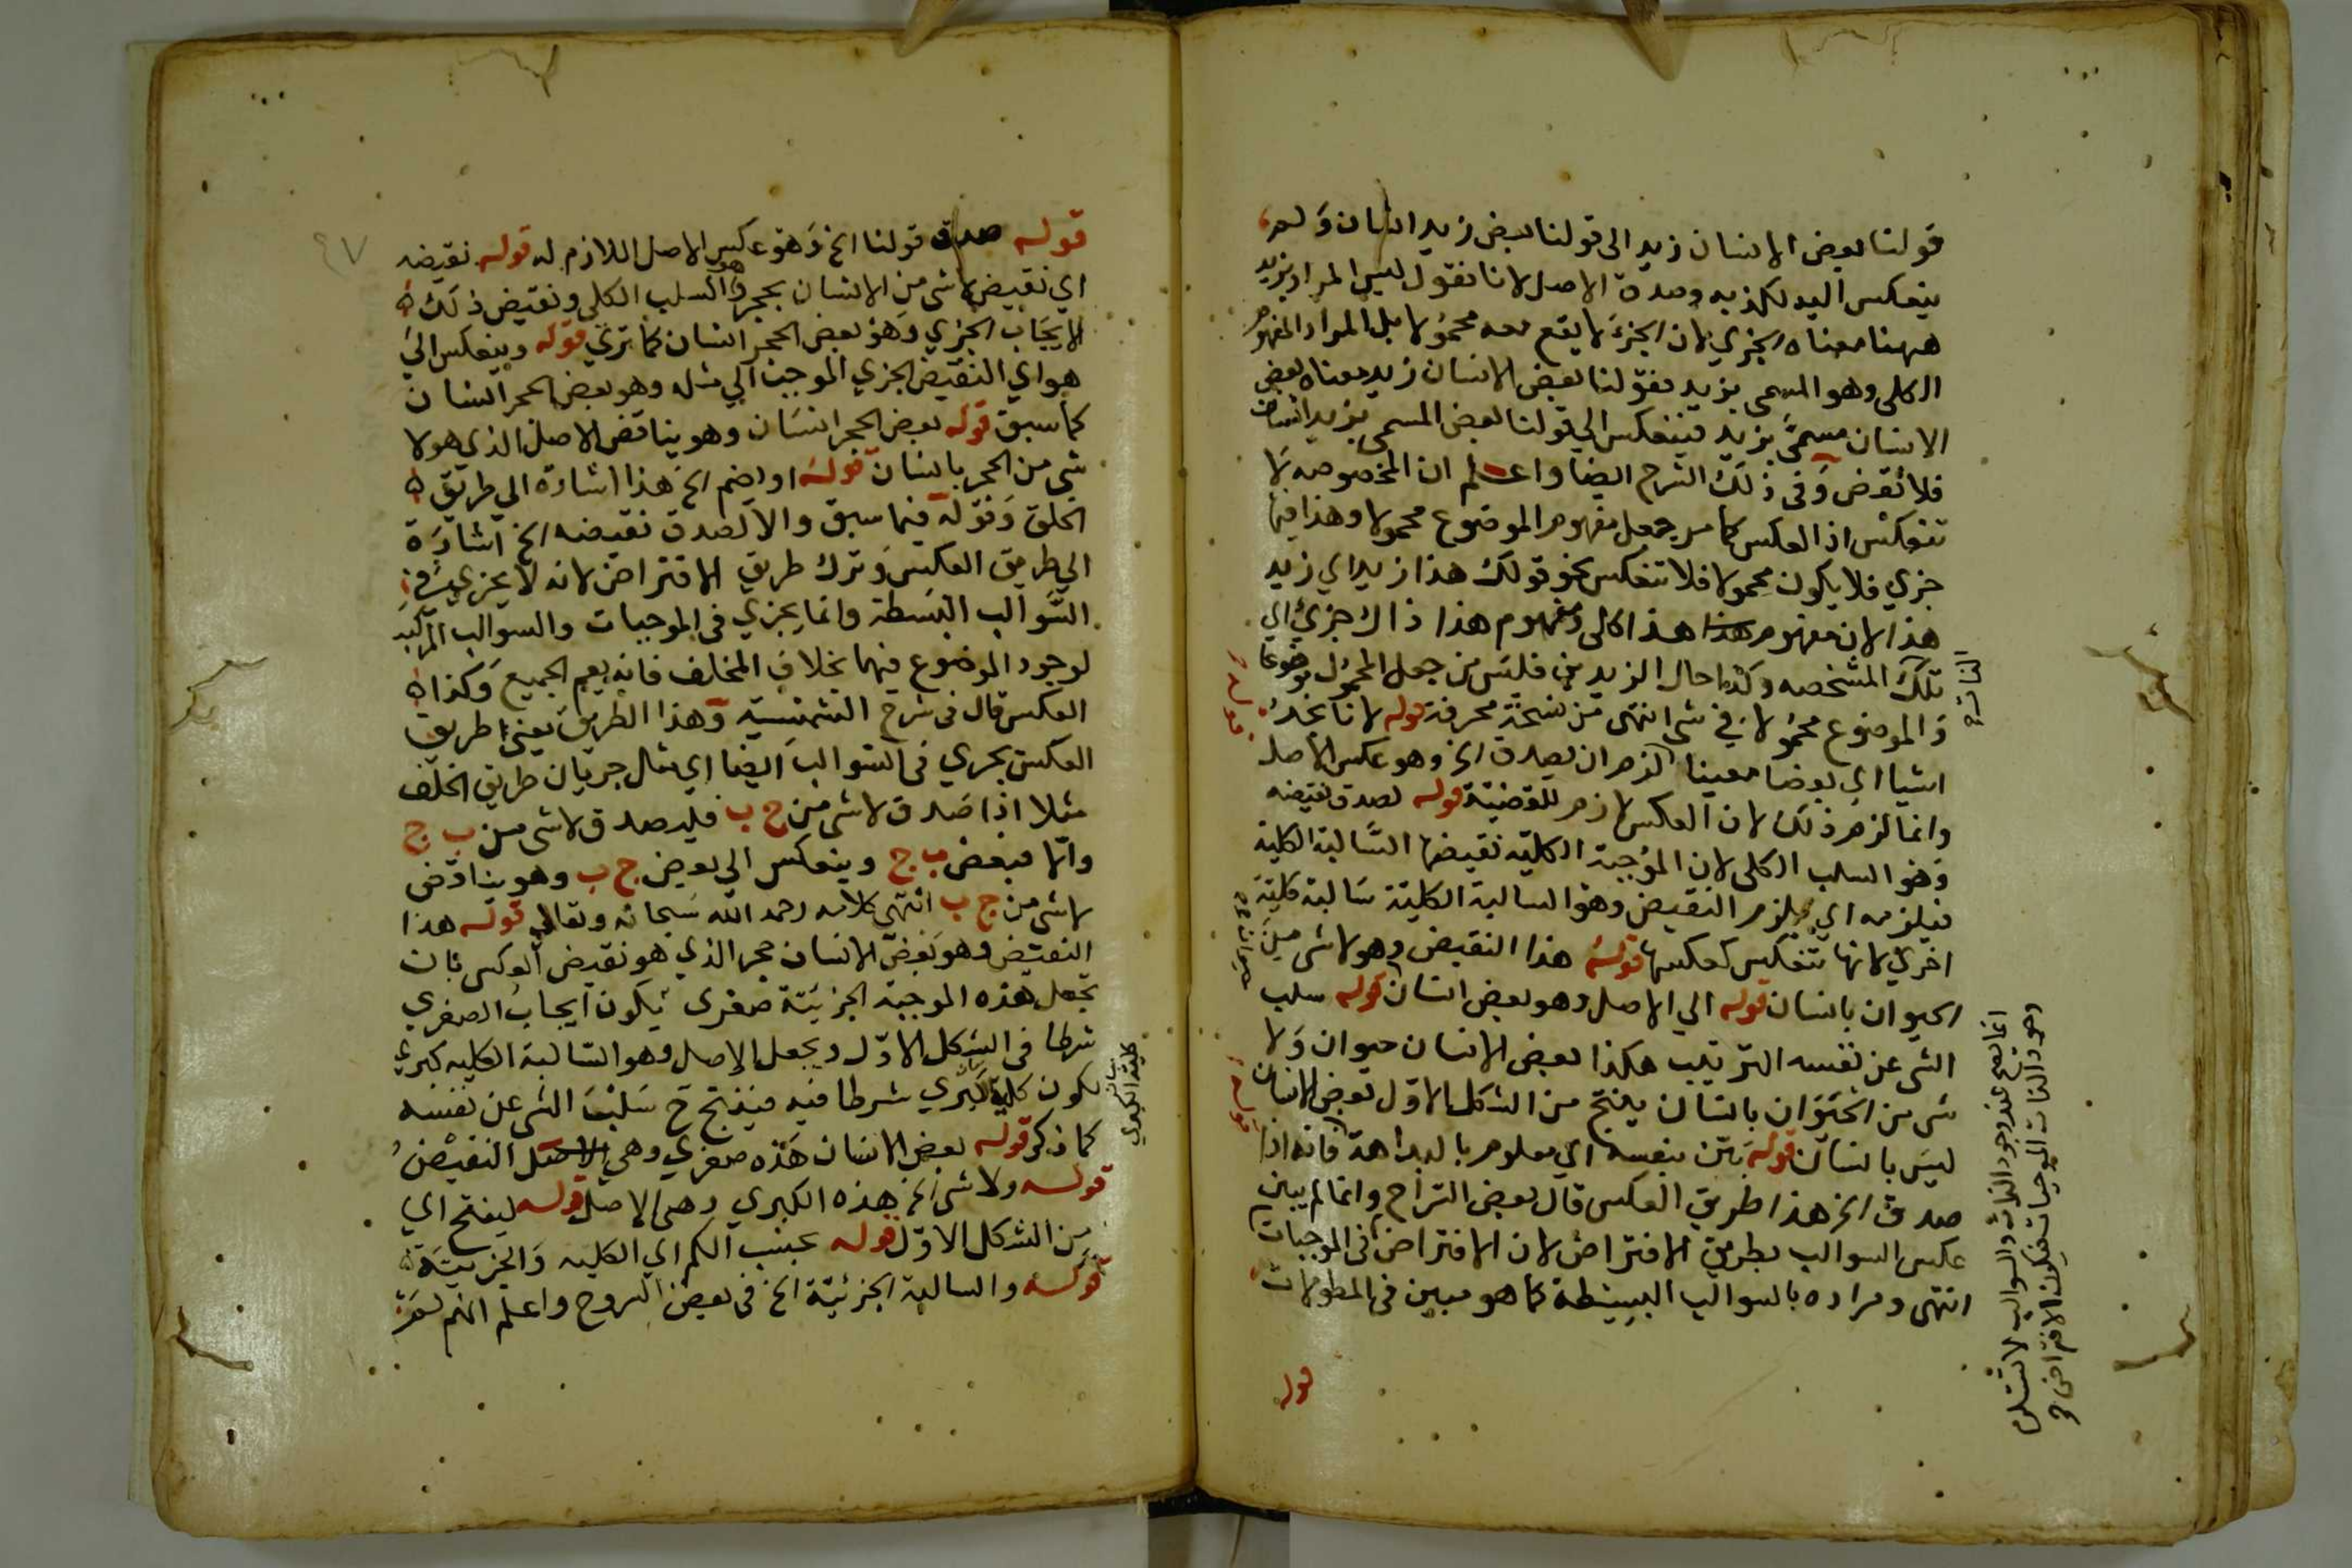 قولنا بعض الانسان زيد الى قولنا بعض زيد انسان ولم
ينعكس اليه لكذبه وصدق الاصل لانا نقول ليس المراد بزيد
ههنا معناه الجزي لان الجزئ لا يقع محمولا بل المراد المفهوم
الكلى وهو المسمى بزيد فقولنا بعض الانسان زيد معناه بعض
الانسان مسمى بزيد فينعكس الي قولنا بعض المسمى بزيد انسان
فلا نقض وفى ذلك الشرح ايضا واعلم ان المخصوصه لا
تنعكس اذ العكس كما مر جعل مفهوم الموضوع محمولا وهذا فيها
جزي فلا يكون محمولا فلا تنعكس نحو قولك هذا زيد اي زيد
هذا لان مفهوم هذا كلى ومفهوم هذا ذاك جزئ اي
تلك المشخصه وكذا حال الزيدين فليس من جعل المحمول موضوعا
والموضوع محمولا في شي انتهى من نسخة محرفة قوله لانا نجد
شيا اي بعضا معينا لزم ان يصدق الخ وهو عكس الاصل
وانما لزم ذلك لان العكس لازم للقضية قوله لصدق نقيضه
وهو السلب الكلى لان الموجبة الكلية نقيضها السالبة الكلية
فيلزمه اي يلزم النقيض وهو السالبة الكلية سالبة كلية
اخري لانها تنعكس كعكسها قوله هذا النقيض وهو لا شى من
الحيوان بانسان قوله الي الاصل وهو بعض انسان قوله سلب
الشى عن نفسه الترتيب هكذا بعض الانسان حيوان ولا
شى من الحيوان بانسان ينتج من الشكل الاول بعض الانسان
ليس بانسان قوله بين بنفسه اي معلوم بالبداهة فانه اذا
صدق الخ هذا طريق العكس قال بعض الشراح وانما لم يبين
عكس السوالب بطريق الافتراض لان الافتراض فى الموجبات
انتهى ومراده بالسوالب البسيطة كما هو مبين فى المطولات
قوله
انما يصح عند وجود الذات والسوالب لا تستلزم
وجود الذات الموجبات فيكون الافتراض
قوله صدق قولنا الخ وهو عكس الاصل اللازم له قوله نقيضه
اي نقيض لا شى من الانسان بحجر هو السلب الكلى ونقيض ذلك
الايجاب الجزي وهو بعض الحجر انسان كما تري قوله وينعكس الي
هو اي النقيض الجزي الموجب الي مثله وهو بعض الحجر انسان
كما سبق قوله بعض الحجر انسان وهو يناقض الاصل الذي هو لا
شى من الحجر بانسان قوله او يضم الخ هذا اشارة الي طريق
الخلف وقوله فيما سبق والا لصدق نقيضه الخ اشارة
الي طريق العكس وترك طريق الافتراض لانه لا يجزي في
السوالب البسطة وانما يجزي فى الموجبات والسوالب المركبه
لوجود الموضوع فيها بخلاف المخلف فانه يعم الجميع وكذا
العكس قال فى شرح الشمسية وهذا الطريق يعنى طريق
العكس يجري فى السوالب ايضا اي مثال جريان طريق الخلف
مثلا اذا صدق لا شى من ج ب فليصدق لا شى من ب ج
والا فبعض ب ج وينعكس الي بعض ج ب وهو يناقض
لا شى من ج ب انتهى كلامه رحمه الله سبحانه وتعالي قوله هذا
النقيض وهو بعض الانسان حجر الذي هو نقيض العكس بان
تجعل هذه الموجبة الجزئية صغرى يكون ايجاب الصغري
شرطا فى الشكل الاول ويجعل الاصل وهو السالبة الكليه كبري
لكون كلية كبري شرطا فيه فينتج ح سلب الشى عن نفسه
كما ذكر قوله بعض الانسان هذه صغري وهي النقيض
قوله ولا شى الخ هذه الكبري وهى الاصل قوله لينتج اي
من الشكل الاول قوله بحسب الكم اي الكليه والجزئية
قوله والسالبة الجزئية الخ فى بعض الشروح واعلم انهم
كلية الكبري